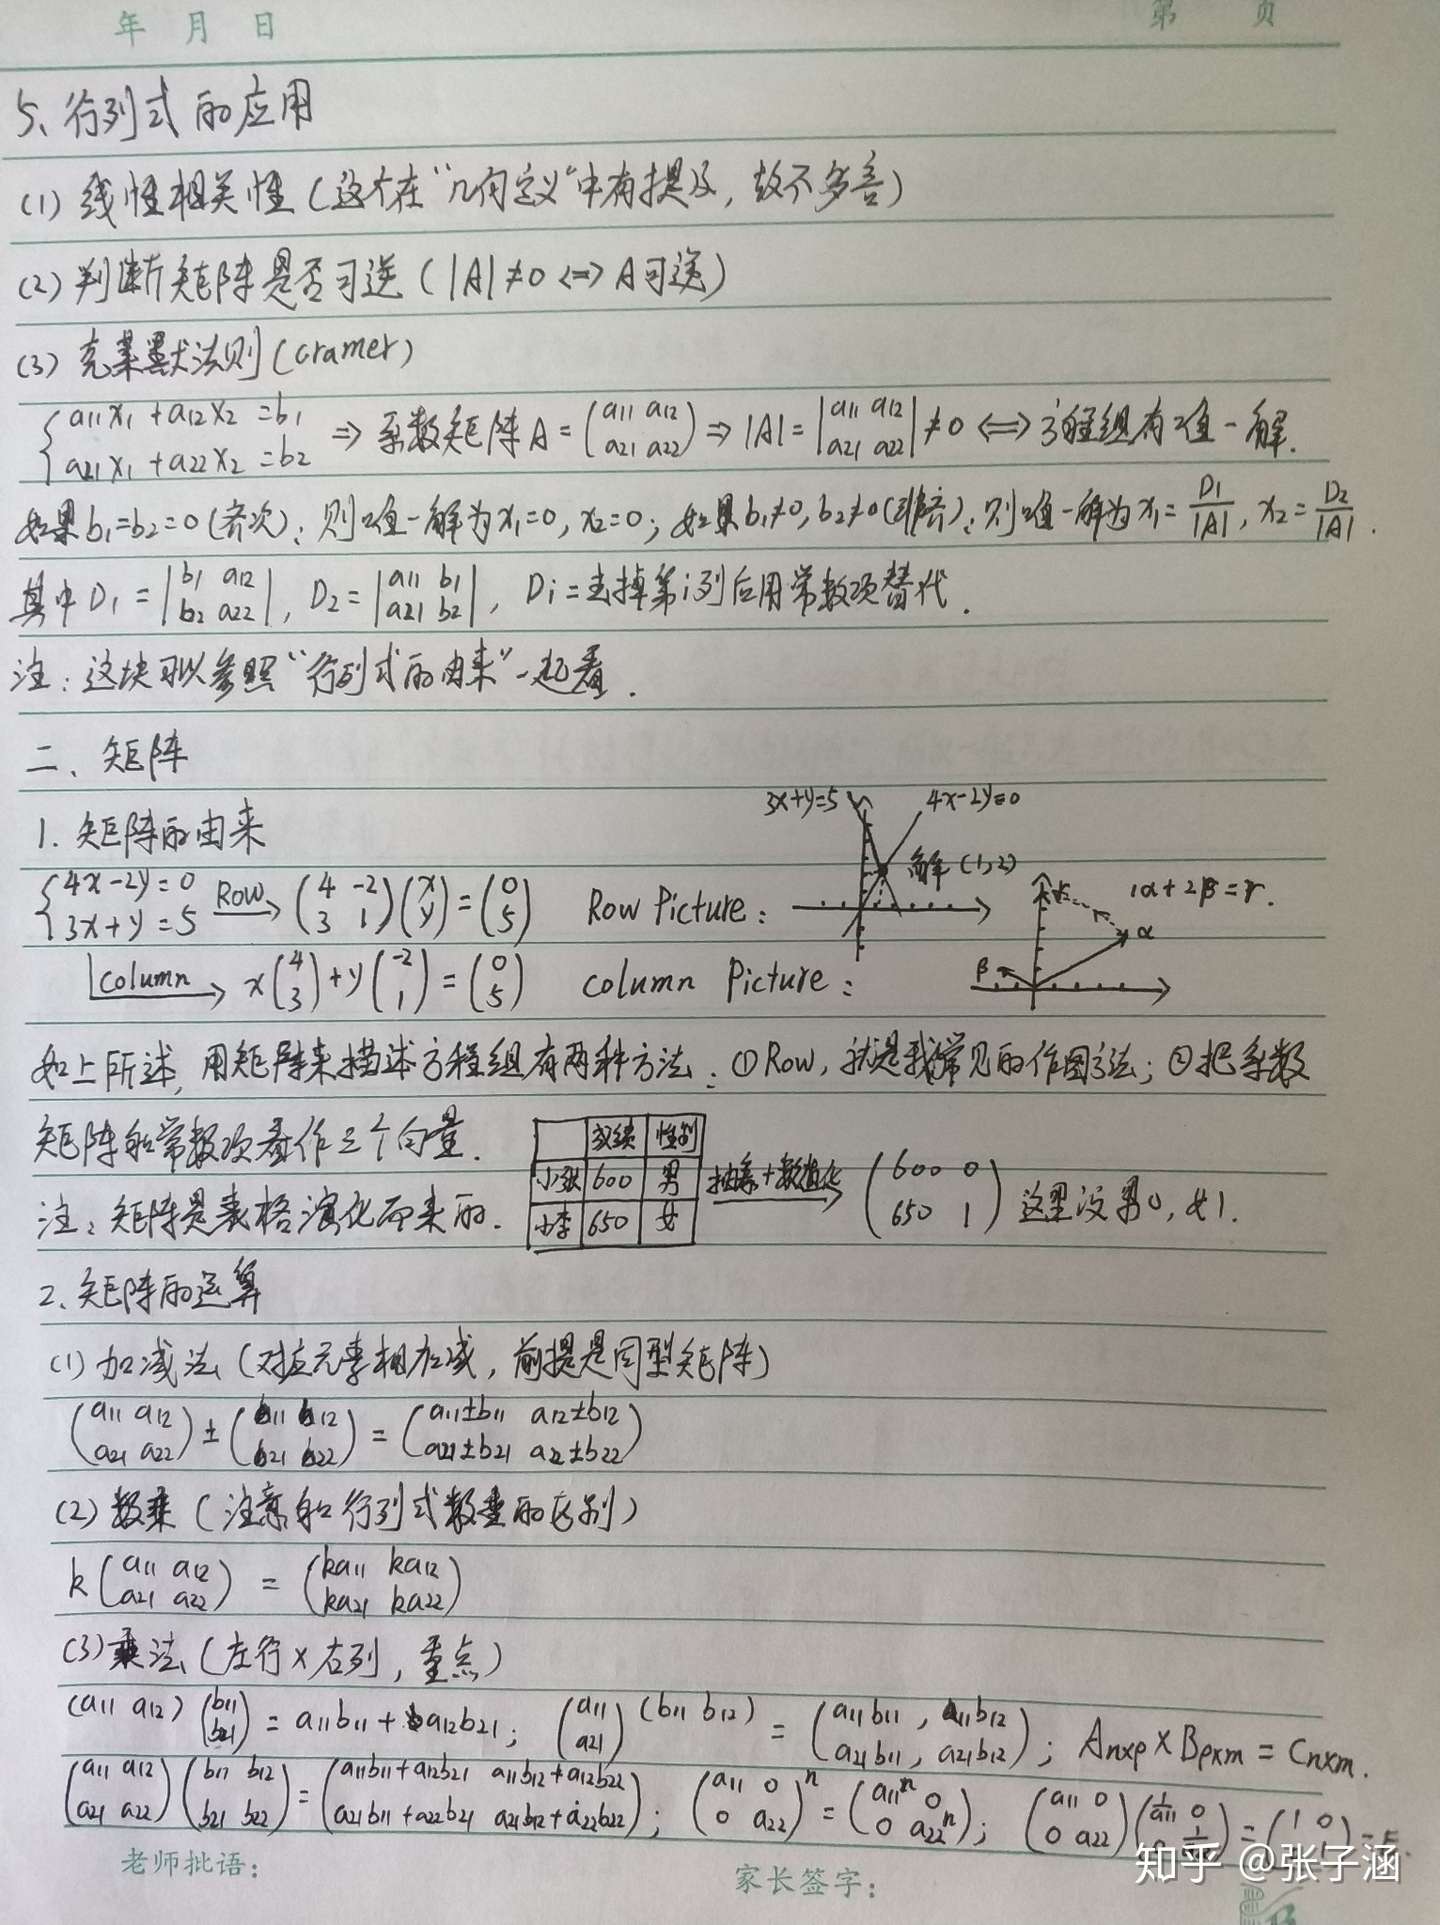 年 月 日 第 页
5、行列式的应用
(1) 线性相关性(这个在"几何定义"中有提及, 故不多言)
(2) 判断矩阵是否可逆(|A|≠0 <=> A可逆)
(3) 克莱默法则(cramer)
{a11x1+a12x2=b1 a21x1+a22x2=b2 => 系数矩阵A=(a11 a12 a21 a22) => |A|=|a11 a12 a21 a22|≠0 <=> 方程组有唯一解.
如果b1=b2=0(齐次):则唯一解为x1=0, x2=0; 如果b1≠0, b2≠0(非齐):则唯一解为x1=D1/|A|, x2=D2/|A|.
其中D1=|b1 a12 b2 a22|, D2=|a11 b1 a21 b2|, Di=去掉第i列后用常数项替代.
注:这块可以参照"行列式的由来"一起看.
二、矩阵
1. 矩阵的由来
3x+y=5 4x-2y=0
解(1,2)
{4x-2y=0 3x+y=5 Row→ (4 -2 3 1)(x y)=(0 5) Row Picture:
1α+2β=γ.
α
β
column→ x(4 3)+y(-2 1)=(0 5) column Picture:
如上所述, 用矩阵来描述方程组有两种方法:①Row, 就是我常见的作图方法; ②把系数
矩阵和常数项看作三个向量.
成绩 性别
小张 600 男
小李 650 女
抽象+数值化→ (600 0 650 1) 这里设男0, 女1.
注:矩阵是表格演化而来的.
2、矩阵的运算
(1) 加减法(对应元素相加减, 前提是同型矩阵)
(a11 a12 a21 a22)±(b11 b12 b21 b22)=(a11±b11 a12±b12 a21±b21 a22±b22)
(2) 数乘(注意和行列式数乘的区别)
k(a11 a12 a21 a22)=(ka11 ka12 ka21 ka22)
(3) 乘法(左行×右列, 重点)
(a11 a12)(b11 b21)=a11b11+a12b21; (a11 a21)(b11 b12)=(a11b11, a11b12 a21b11, a21b12); Anxp×Bpxm=Cnxm.
(a11 a12 a21 a22)(b11 b12 b21 b22)=(a11b11+a12b21 a11b12+a12b22 a21b11+a22b21 a21b12+a22b22); (a11 0 0 a22)^n=(a11^n 0 0 a22^n); (a11 0 0 a22)(1/a11 0 0 1/)=(1 0 1)=E.
老师批语: 家长签字:
知乎 @张子涵